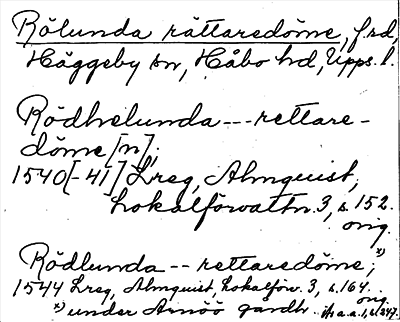 Rölunda rättaredöme, f.rd,
Häggeby sn, Håbo hd, Upps. l.
Rödhelunda --- rettare-
döme [n];
1540[-41] Lreg, Almquist,
Lokalförvaltn. 3, s. 152.
orig.
Rödlunda -- rettaredöme; x)
1544 Lreg, Almquist, Lokalförv. 3, s. 164.
orig.
x) under Arnöö gårdh. ib a.a. 1, s. 247.